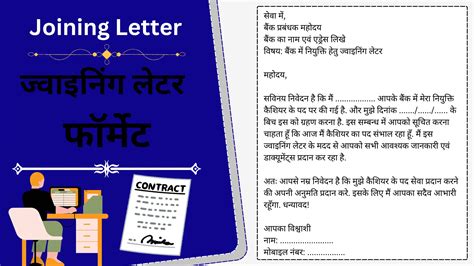 Joining Letter
ज्वाइनिंग लेटर
फॉर्मेट
CONTRACT
सेवा में,
बैंक प्रबंधक महोदय
बैंक का नाम एवं एड्रेस लिखे
विषय: बैंक में नियुक्ति हेतु ज्वाइनिंग लेटर
महोदय,
सविनय निवेदन है कि मैं ................. आपके बैंक में मेरा नियुक्ति
कैशियर के पद पर की गई है. और मुझे दिनांक ......./....../...... के
बिच इस को ग्रहण करना है. इस सम्बन्ध में आपको सूचित करना
चाहता हूँ कि आज मैं कैशियर का पद संभाल रहा हूँ. मैं इस
ज्वाइनिंग लेटर के मदद से आपको सभी आवश्यक जानकारी एवं
डाक्यूमेंट्स प्रदान कर रहा है.
अतः आपसे नम्र निवेदन है कि मुझे कैशियर के पद सेवा प्रदान करने
की अपनी अनुमति प्रदान करे. इसके लिए मैं आपका सदैव आभारी
रहूँगा. धन्यवाद!
आपका विश्वाशी
नाम: .......................
मोबाइल नंबर: ...................